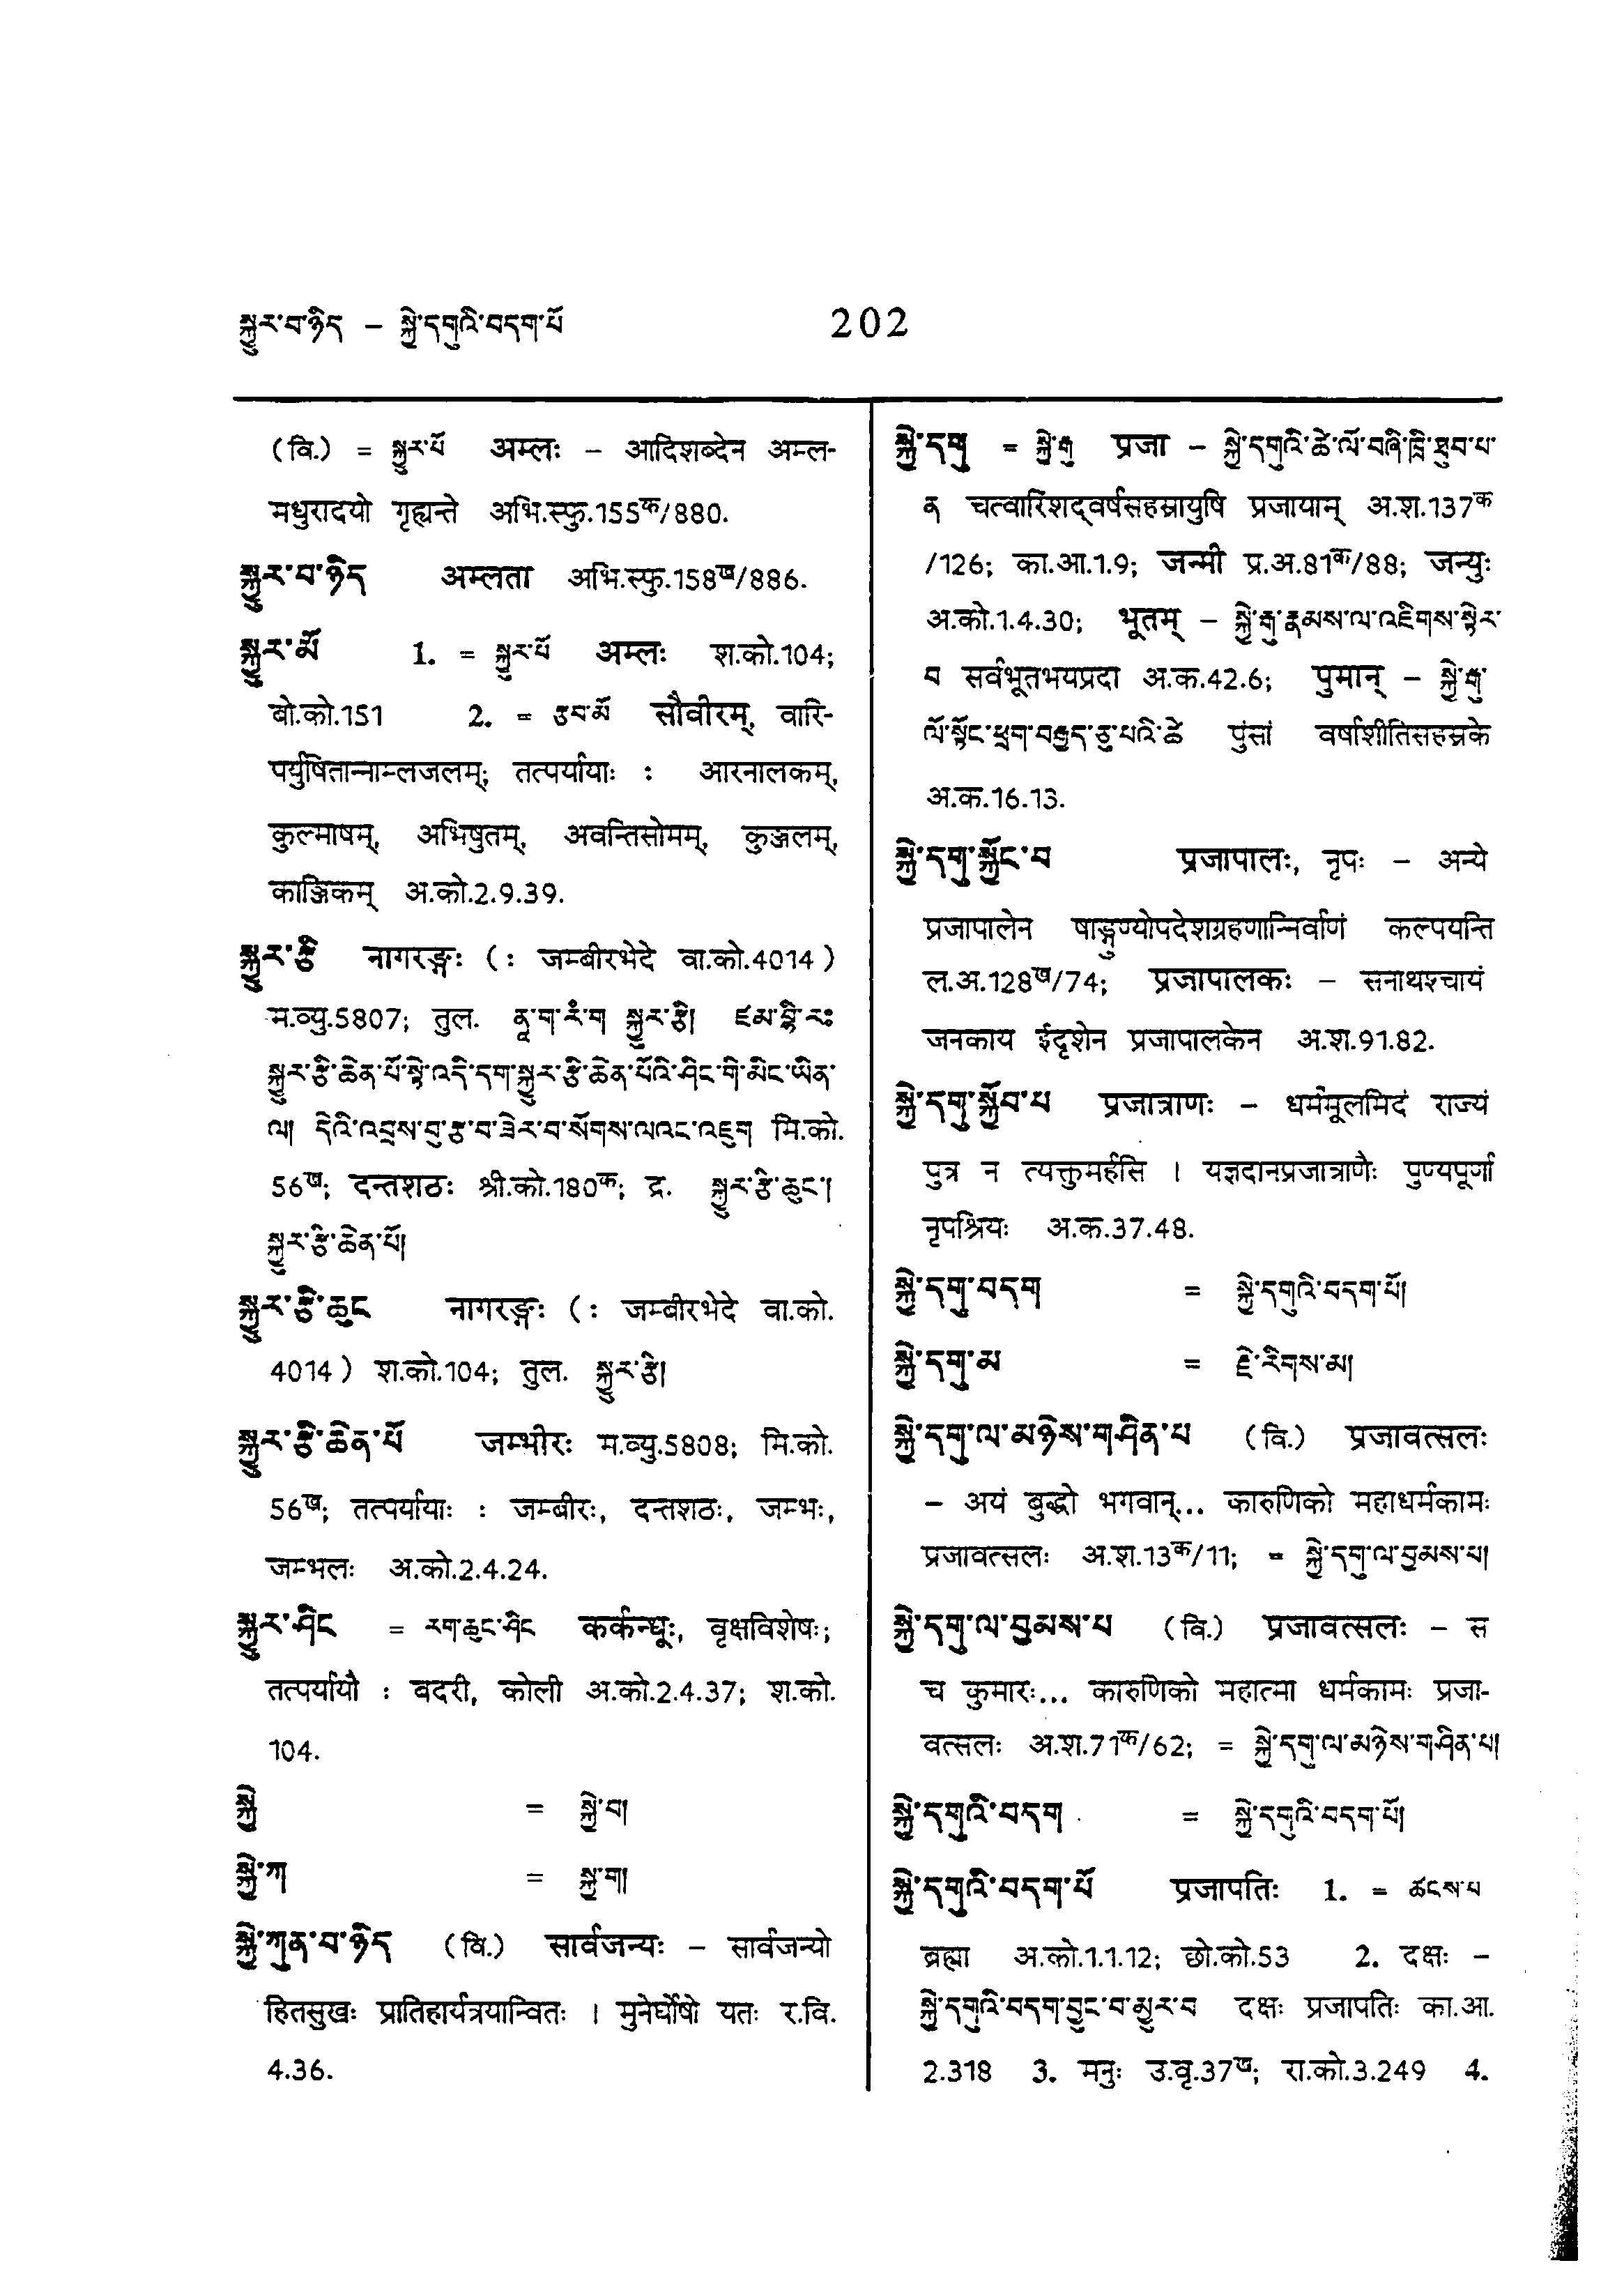 སྐྱུར་བ་ཉིད – སྐྱེ་དགུའི་བདག་པོ
202
(वि.) = སྐྱུར་པོ अम्लः – आदिशब्देन अम्ल-
मधुरादयो गृह्यन्ते अभि.स्फु.155क/880.
སྐྱུར་བ་ཉིད अम्लता अभि.स्फु.158ख/886.
སྐྱུར་མོ 1. = སྐྱུར་པོ अम्लः श.को.104;
बो.को.151 2. = ཙབ་མོ सौवीरम्, वारि-
पर्युषितान्नाम्लजलम्; तत्पर्यायाः : आरनालकम्,
कुल्माषम्, अभिषुतम्, अवन्तिसोमम्, कुञ्जलम्,
काञ्जिकम् अ.को.2.9.39.
སྐྱུར་རྩི नागरङ्गः (: जम्बीरभेदे वा.को.4014 )
म.व्यु.5807; तुल. ནཱ་ག་རཾ་ག སྐྱུར་རྩི། ཛམ་བྷཱི་རཿ
སྐྱུར་རྩི་ཆེན་པོ་སྟེ་འདི་དག་སྐྱུར་རྩི་ཆེན་པོའི་ཤིང་གི་མིང་ཡིན་
ལ། དེའི་འབྲས་བུ་རྩ་བ་ཟེར་བ་སོགས་ལའང་འཇུག मि.को.
56ख; दन्तशठः श्री.को.180क; द्र. སྐྱུར་རྩི་ཆུང་།
སྐྱུར་རྩི་ཆེན་པོ།
སྐྱུར་རྩི་ཆུང नागरङ्गः (: जम्बीरभेदे वा.को.
4014 ) श.को.104; तुल. སྐྱུར་རྩི།
སྐྱུར་རྩི་ཆེན་པོ जम्भीरः म.व्यु.5808; मि.को.
56ख; तत्पर्यायाः : जम्बीरः, दन्तशठः, जम्भः,
जम्भलः अ.को.2.4.24.
སྐྱུར་ཤིང = རག་ཆུང་ཤིང कर्कन्धूः, वृक्षविशेषः;
तत्पर्यायौ : वदरी, कोली अ.को.2.4.37; श.को.
104.
སྐྱེ = སྐྱེ་བ།
སྐྱེ་ཀ = སྐྱ་ག།
སྐྱེ་ཀུན་བ་ཉིད (वि.) सार्वजन्यः – सार्वजन्यो
हितसुखः प्रातिहार्यत्रयान्वितः । मुनेर्घोषो यतः र.वि.
4.36.
སྐྱེ་དགུ = སྐྱེ་རྒུ प्रजा – སྐྱེ་དགུའི་ཚེ་ལོ་བཞི་ཁྲི་ཐུབ་པ་
ན चत्वारिंशद्वर्षसहस्रायुषि प्रजायाम् अ.श.137क
/126; का.आ.1.9; जन्मी प्र.अ.81क/88; जन्युः
अ.को.1.4.30; भूतम् – སྐྱེ་རྒུ་རྣམས་ལ་འཇིགས་སྟེར་
བ सर्वभूतभयप्रदा अ.क.42.6; पुमान् – སྐྱེ་རྒུ་
ལོ་སྟོང་ཕྲག་བརྒྱད་ཅུ་པའི་ཚེ पुंसां वर्षाशीतिसहस्रके
अ.क.16.13.
སྐྱེ་དགུ་སྐྱོང་བ प्रजापालः, नृपः – अन्ये
प्रजापालेन षाड्गुण्योपदेशग्रहणान्निर्वाणं कल्पयन्ति
ल.अ.128ख/74; प्रजापालकः – सनाथश्चायं
जनकाय ईदृशेन प्रजापालकेन अ.श.91.82.
སྐྱེ་དགུ་སྐྱོབ་པ प्रजात्राणः – धर्ममूलमिदं राज्यं
पुत्र न त्यक्तुमर्हसि । यज्ञदानप्रजात्राणैः पुण्यपूर्णा
नृपश्रियः अ.क.37.48.
སྐྱེ་དགུ་བདག = སྐྱེ་དགུའི་བདག་པོ།
སྐྱེ་དགུ་མ = རྗེ་རིགས་མ།
སྐྱེ་དགུ་ལ་མཉེས་གཤིན་པ (वि.) प्रजावत्सलः
– अयं बुद्धो भगवान्... कारुणिको महाधर्मकामः
प्रजावत्सलः अ.श.13क/11; = སྐྱེ་དགུ་ལ་བྱམས་པ།
སྐྱེ་དགུ་ལ་བྱམས་པ (वि.) प्रजावत्सलः – स
च कुमारः... कारुणिको महात्मा धर्मकामः प्रजा-
वत्सलः अ.श.71क/62; = སྐྱེ་དགུ་ལ་མཉེས་གཤིན་པ།
སྐྱེ་དགུའི་བདག = སྐྱེ་དགུའི་བདག་པོ།
སྐྱེ་དགུའི་བདག་པོ प्रजापतिः 1. = ཚངས་པ
ब्रह्मा अ.को.1.1.12; छो.को.53 2. दक्षः –
སྐྱེ་དགུའི་བདག་བྱུང་བ་མྱུར་བ दक्षः प्रजापतिः का.आ.
2.318 3. मनुः उ.वृ.37ख; रा.को.3.249 4.